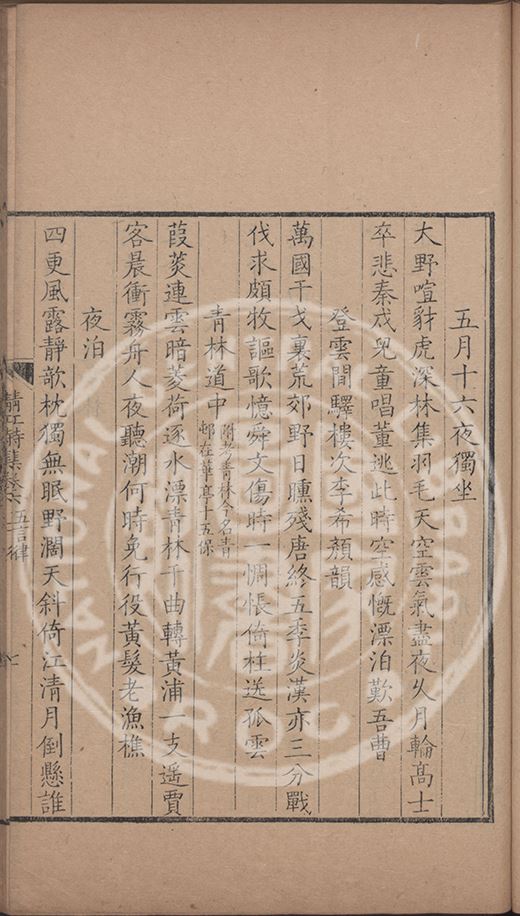 五月十六夜獨坐
大野喧豺虎深林集羽毛天空雲氣盡夜久月輪高士
卒悲秦戍兒童唱董逃此時空感慨漂泊歎吾曹
登雲間驛樓次李希顏韻
萬國干戈裏荒郊野日曛殘唐終五季炎漢亦三分戰
伐求頗牧謳歌憶舜文傷時一惆悵倚柱送孤雲
青林道中附考青林今名青邨在華亭十五保
葭菼連雲暗菱荷逐水漂青林千曲轉黃浦一支遥賈
客晨衝霧舟人夜聽潮何時免行役黃髮老漁樵
夜泊
四更風露靜欹枕獨無眠野濶天斜倚江清月倒懸誰
清江詩集卷六 五言律 七